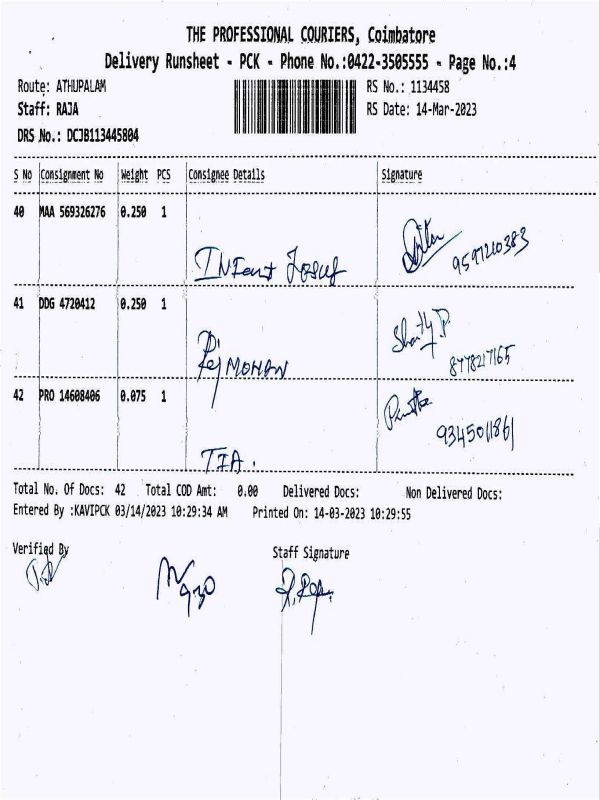 THE PROFESSIONAL COURIERS, Coimbatore
Delivery Runsheet - PCK - Phone No.:0422-3505555 - Page No.:4
Route: ATHUPALAM RS No.: 1134458
Staff: RAJA RS Date: 14-Mar-2023
DRS No.: DCJB113445804
S No Consignment No Weight PCS Consignee Details Signature
40 MAA 569326276 0.250 1
INFant Josuf 9597210383
41 DDG 4720412 0.250 1
Shanty P
Rej MOHAN 8778217165
42 PRO 14608406 0.075 1
9345011861
TIA.
Total No. Of Docs: 42 Total COD Amt: 0.00 Delivered Docs: Non Delivered Docs:
Entered By :KAVIPCK 03/14/2023 10:29:34 AM Printed On: 14-03-2023 10:29:55
Verified By Staff Signature